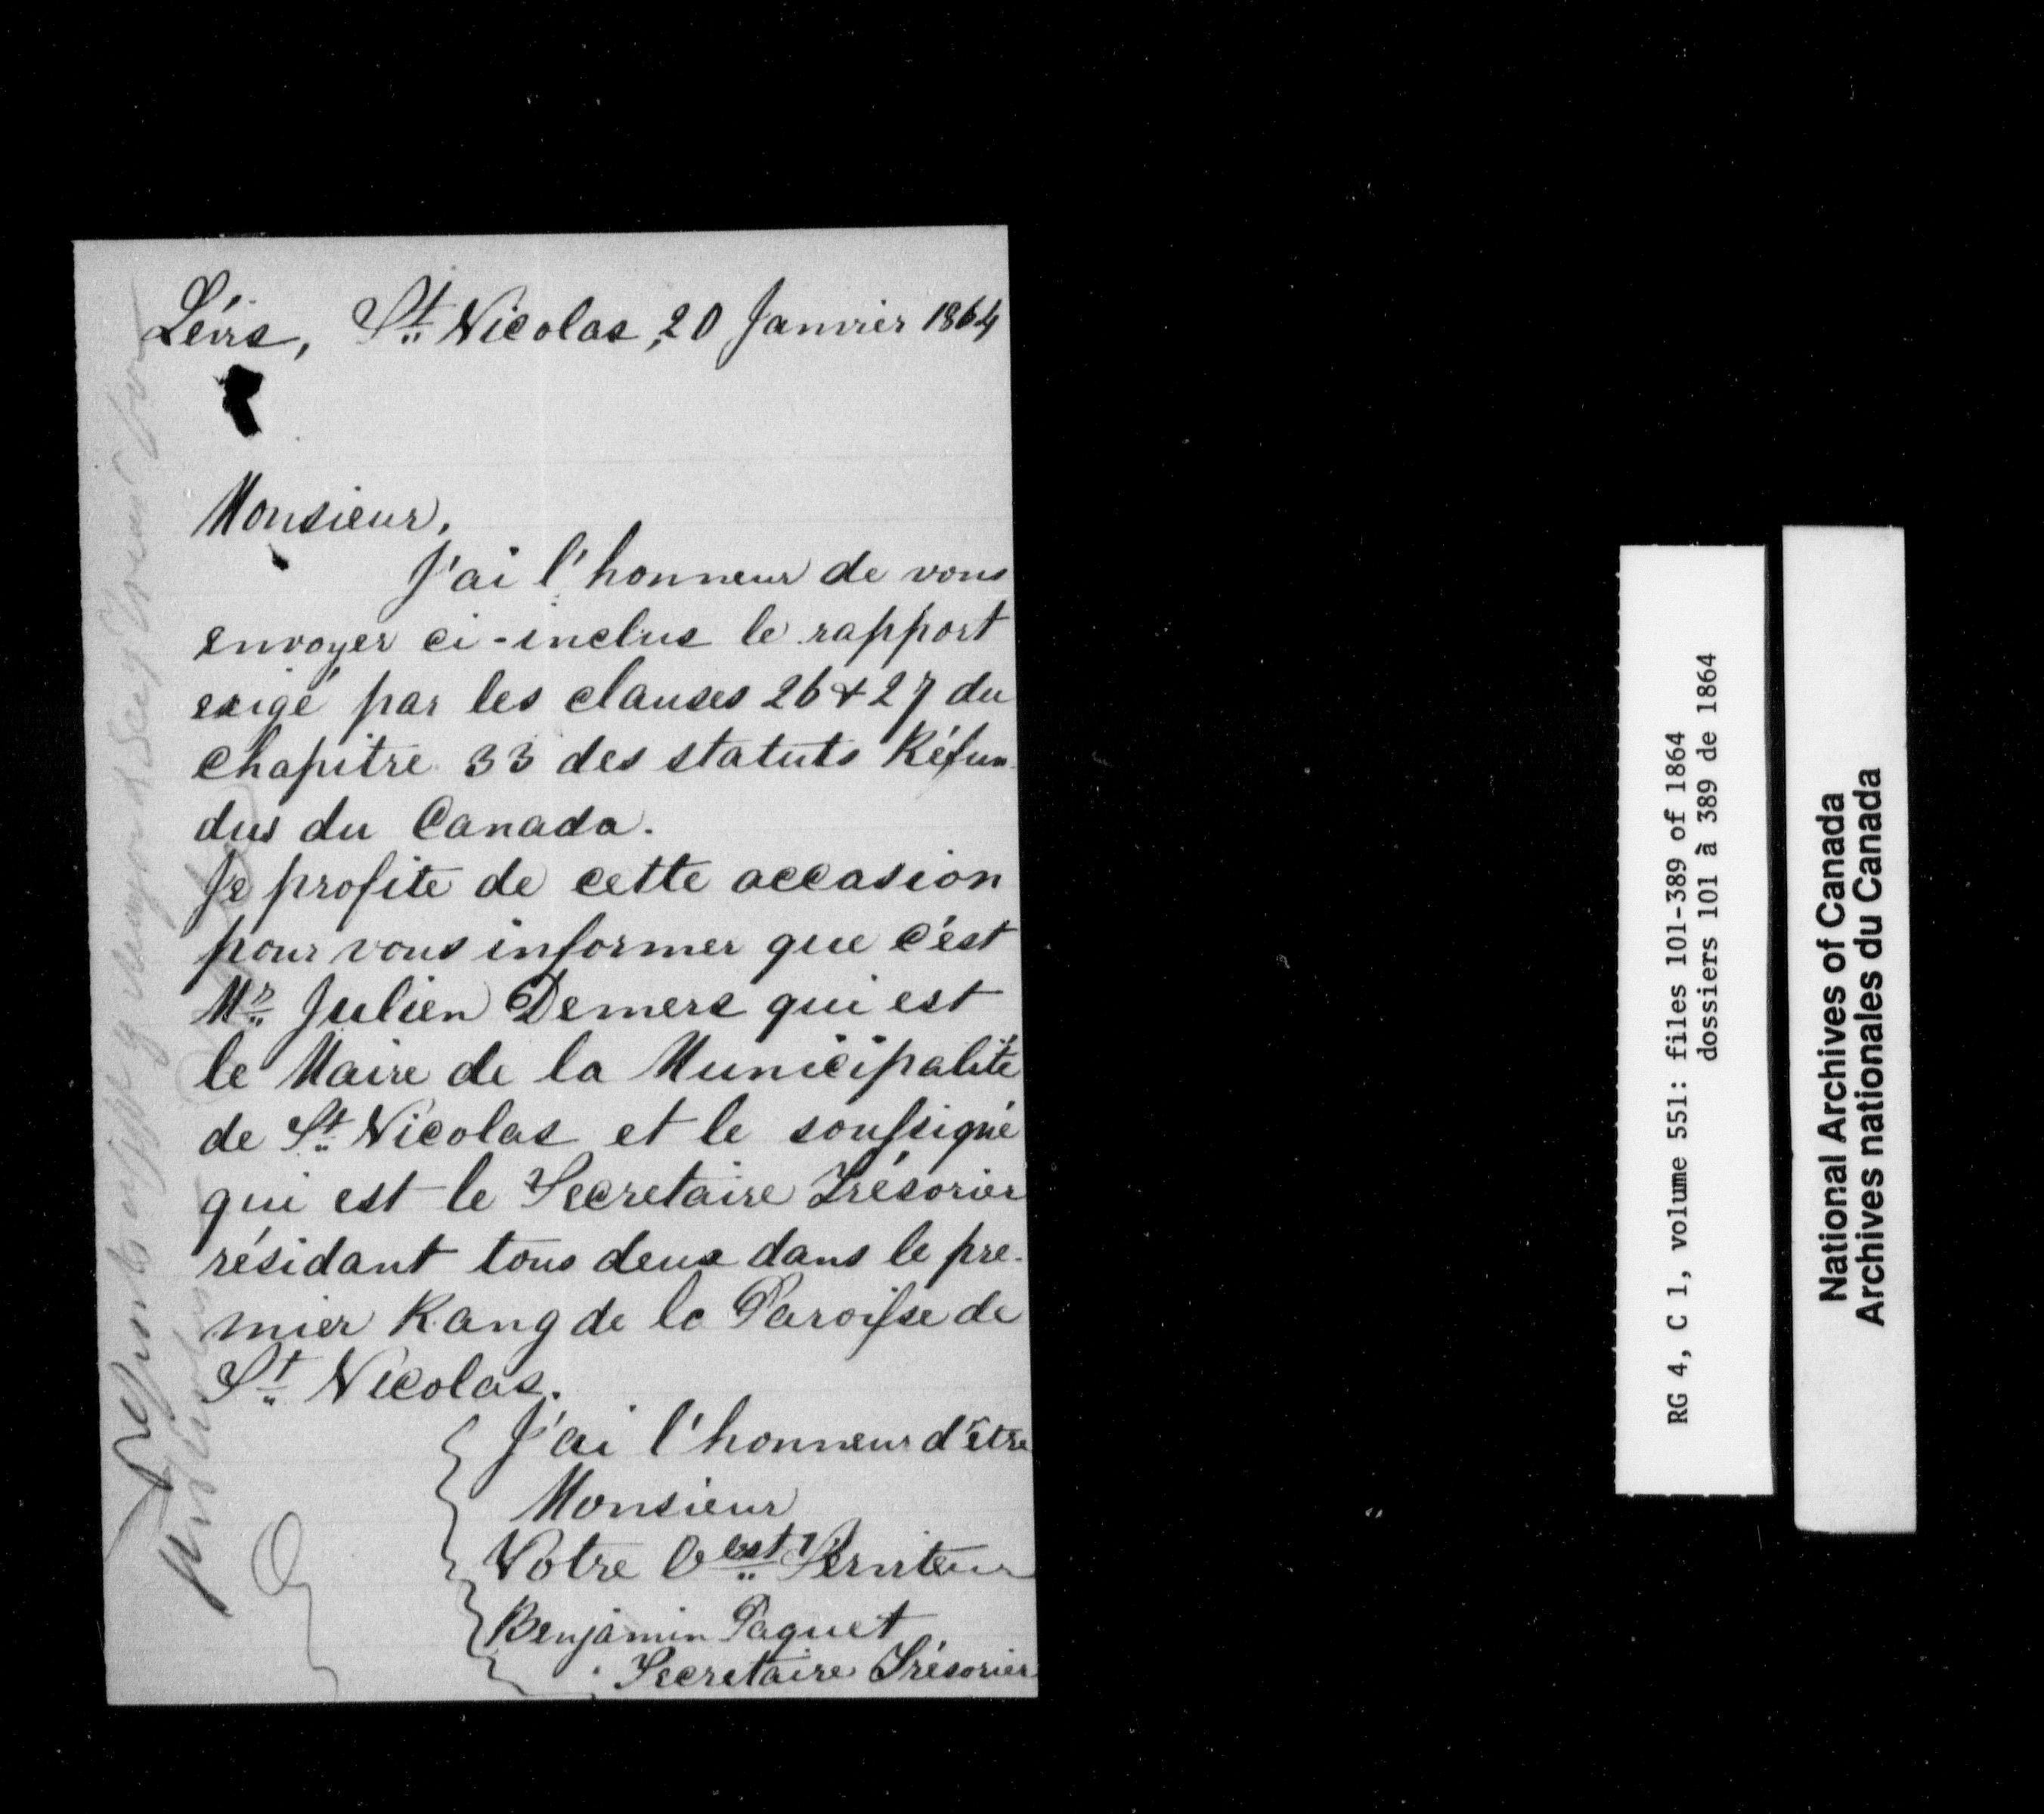 Lévis, St. Nicolas, 20 Janvier 1864
Monsieur,
J'ai l'honneur de vous
envoyer ci-inclus le rapport
exigé par les clauses 26 & 27 du
Chapitre 33 des statuts Réfun-
dus du Canada.
Je profite de cette accasion
pour vous informer que c'est
Mr. Julien Demers qui est
le Maire de la Municipalité
de St. Nicolas et le soussigné
qui est le Secretaire Trésorier
résidant tous deux dans le pre-
mier Rang de la Paroisse de
St. Nicolas.
J'ai l'honneur d'être
Monsieur
Votre Obést. Serviteur
Benjamin Paquet
Secretaire Trésorier
RG 4, C 1, volume 551: files 101-389 of 1864
dossiers 101 à 389 de 1864
National Archives of Canada
Archives nationales du Canada